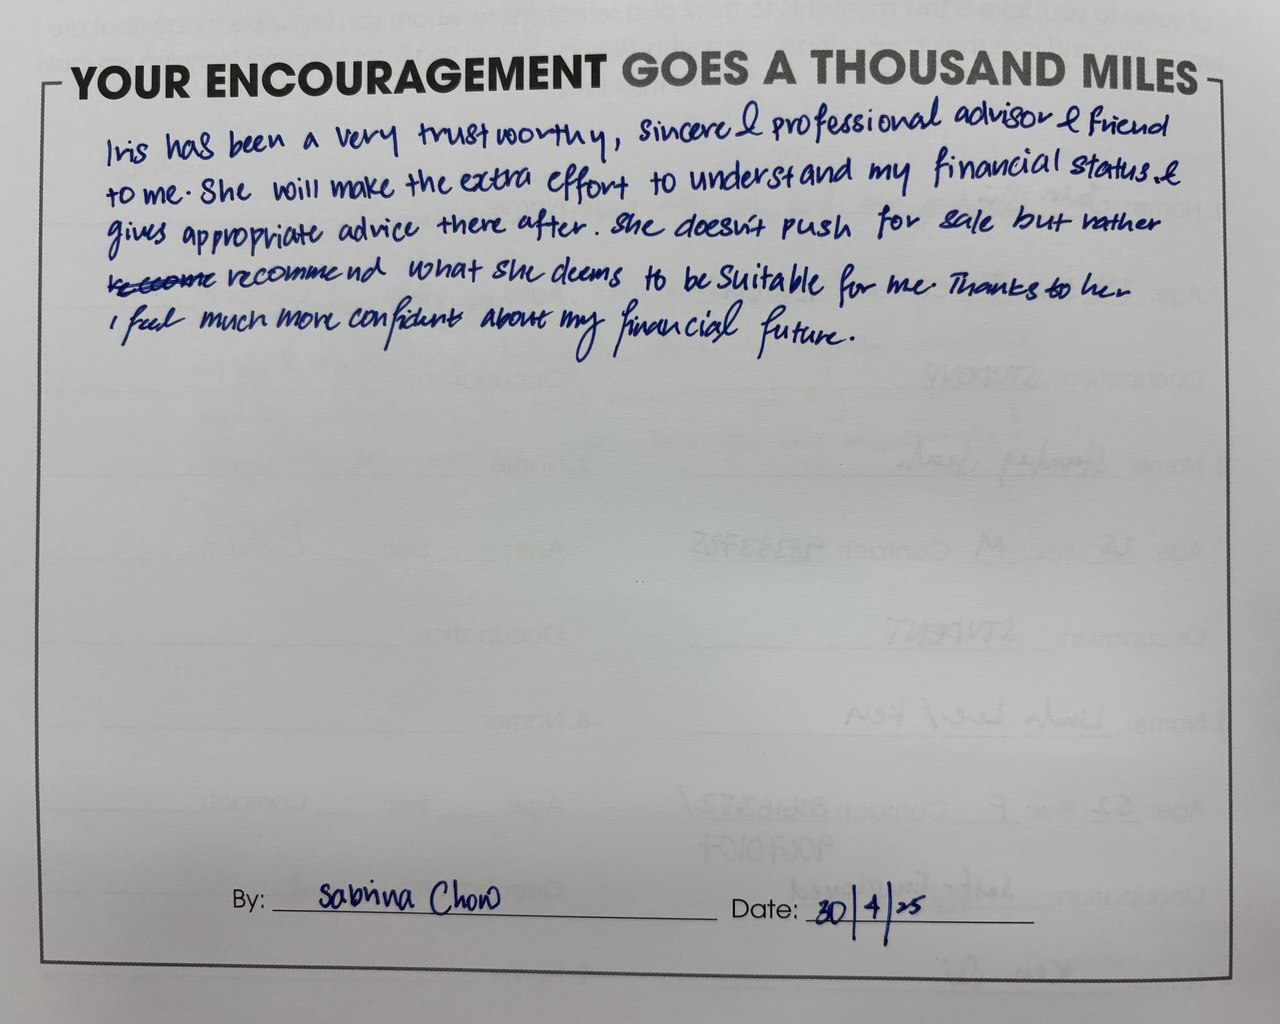 YOUR ENCOURAGEMENT GOES A THOUSAND MILES
Iris has been a very trustworthy, sincere & professional advisor & friend
to me. She will make the extra effort to understand my financial status &
gives appropriate advice there after. She doesn't push for sale but rather
recommend what she deems to be suitable for me. Thanks to her
i feel much more confident about my financial future.
By: Sabrina Chow Date: 30/4/25